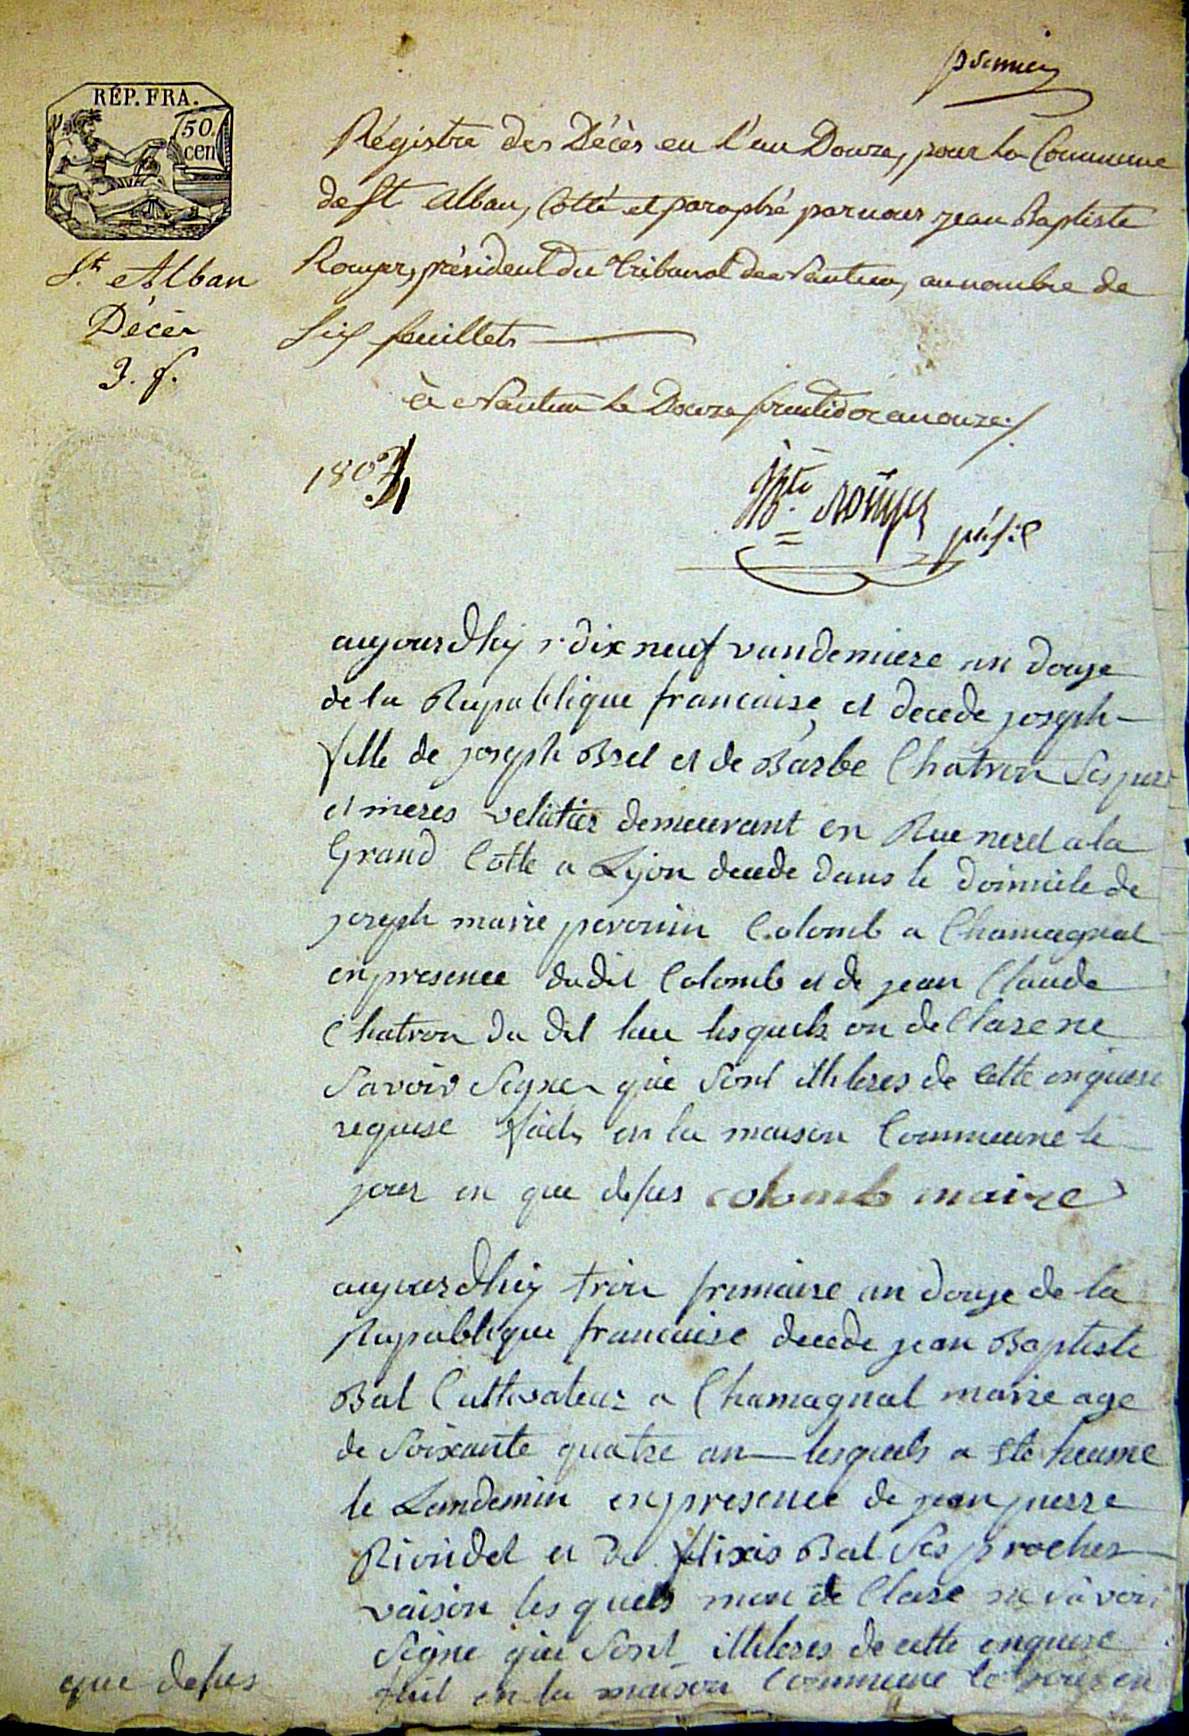 premier
RÉP. FRA.
50.
cen
St. Alban
Décès
3. f.
Régistre des Décès en l'an Douze, pour la Commune
de St Alban, Cotté et paraphé par nous jean Baptiste
Rouyer, président du Tribunal de Nantua, au nombre de
Six feuillets
à Nantua le Douze fructidor an onze.
1803
Jn Bte Rouyer présid
aujourdhy dix neuf vandemiere an douze
de la Republique francaise et decede joseph
fille de joseph Brel et de Barbe Chatron Ses pere
et meres velutier demeurant en Rue neret a la
Grand Cotte a Lyon decede dans le domicile de
joseph marie Colomb a Chamagnat
en presence dudit Colomb et de jean Claude
Chatron du dit lieu lesquels on de Clare ne
Savoir Signer que Sont illiteres de cette enquere
requise fait en la maison Commune le
jour en que desus colomb maire
aujourdhuy trois frimaire an douze de la
Republique francaise decede jean Baptiste
Bal Cultivateur a Chamagnat marie age
de Soixante quatre an lesquels a ete heume
le Landemin en presence de jean pierre
Rioudet et de felixis Bal Ses proches
vaision les quels mon de Clare ne savoir
Signe que Sont illiteres de cette enquere
fait en la maison Commune le jour en
que desus